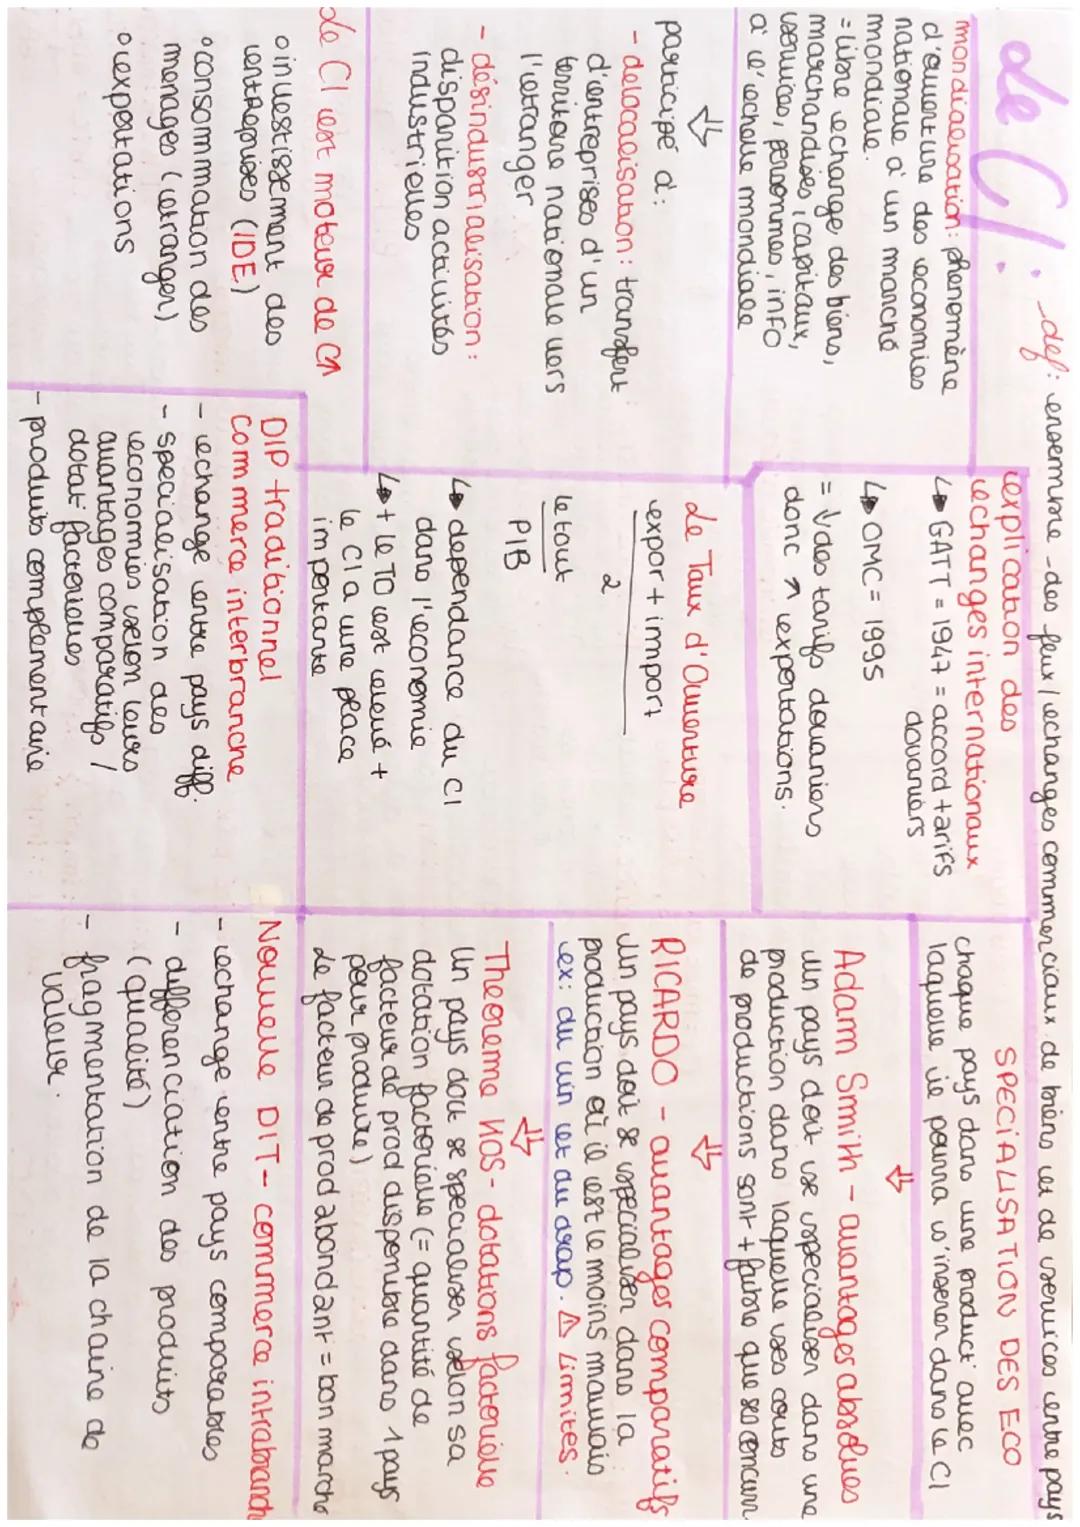 Le CI : def: ensemble des feux/echanges commerciaux de biens et de services entre pays
mondialisation: phenomène
d'ouverture des economies
nationale à un marché
mondiale.
= libre echange des biens,
marchandises, capitaux,
services, personnes, info
à l'echelle mondiale
⇓
participe à:
- delocalisation: transfert
d'entreprises d'un
territoire nationale vers
l'etranger
- désindustrialisation:
disparition activités
industrielles
Le CI est moteur de CM
o investissement des
entreprises (IDE)
o consommation des
menages (etranger)
o exportations
explication des
echanges internationaux
↳ GATT = 1947 = accord tarifs
douaniers
↳ OMC = 1995
= ↓ des tarifs douaniers
donc ↗ exportations.
Le Taux d'Ouverture
export + import
2
le tout
PIB
↳ dependance du CI
dans l'economie
↳ + le TO est elevé +
le CI a une place
importante
SPECIALISATION DES ECO
chaque pays dans une product° avec
laquelle il pourra s'inserer dans le CI
⇓
Adam Smith - avantages absolues
Un pays doit se specialiser dans une
production dans laquelle ses couts
de productions sont + faible que ses concurr
⇓
RICARDO - avantages comparatifs
Un pays doit se specialiser dans la
production où il est le moins mauvais
ex: du vin et du drap. ⚠ Limites.
⇓
Theoreme HOS - dotations factorielle
Un pays doit se specialiser selon sa
dotation factorielle (= quantité de
facteur de prod disponible dans 1 pays
pour produire)
Le facteur de prod abondant = bon marché
DIP traditionnel
Commerce interbranche
- echange entre pays diff.
- specialisation des
economies selon leurs
avantages comparatifs /
dotat° factorielles
- produits complementaire
Nouvelle DIT - commerce intrabranch
- echange entre pays comparables
- differenciation des produits
(qualité)
- fragmentation de la chaine de
valeur.